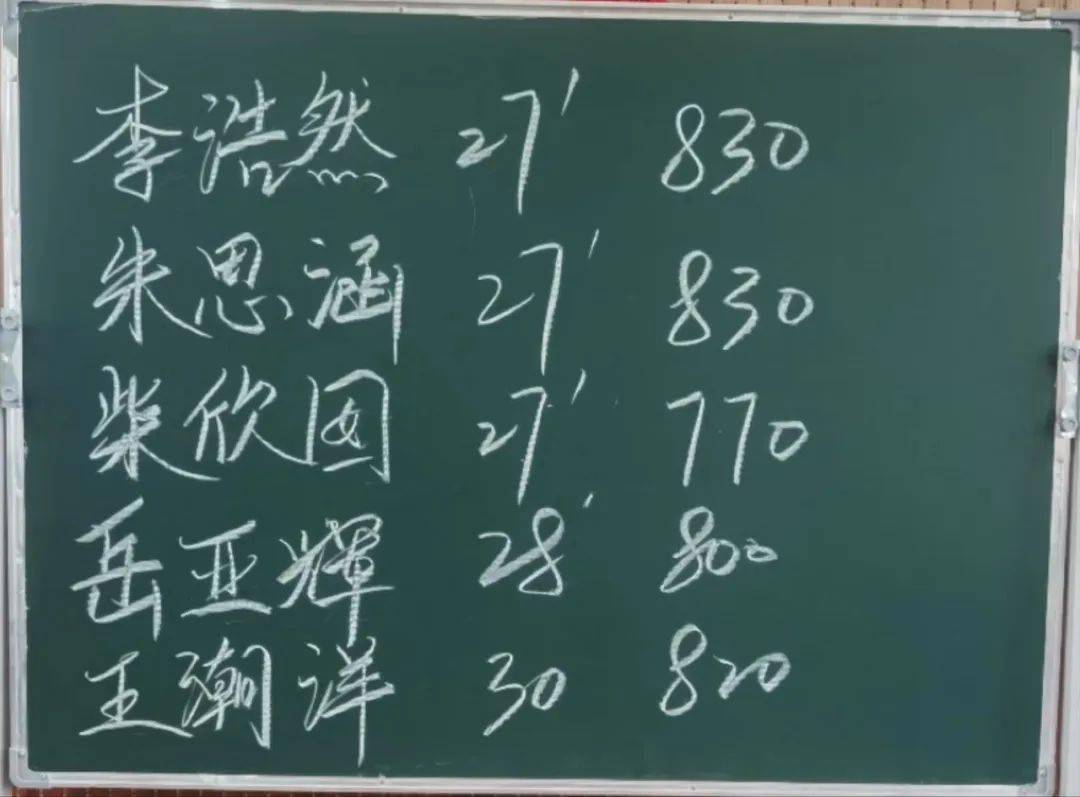 李浩然 27' 830
朱思涵 27' 830
柴欣囡 27' 770
岳亚辉 28' 800
王潮洋 30 820